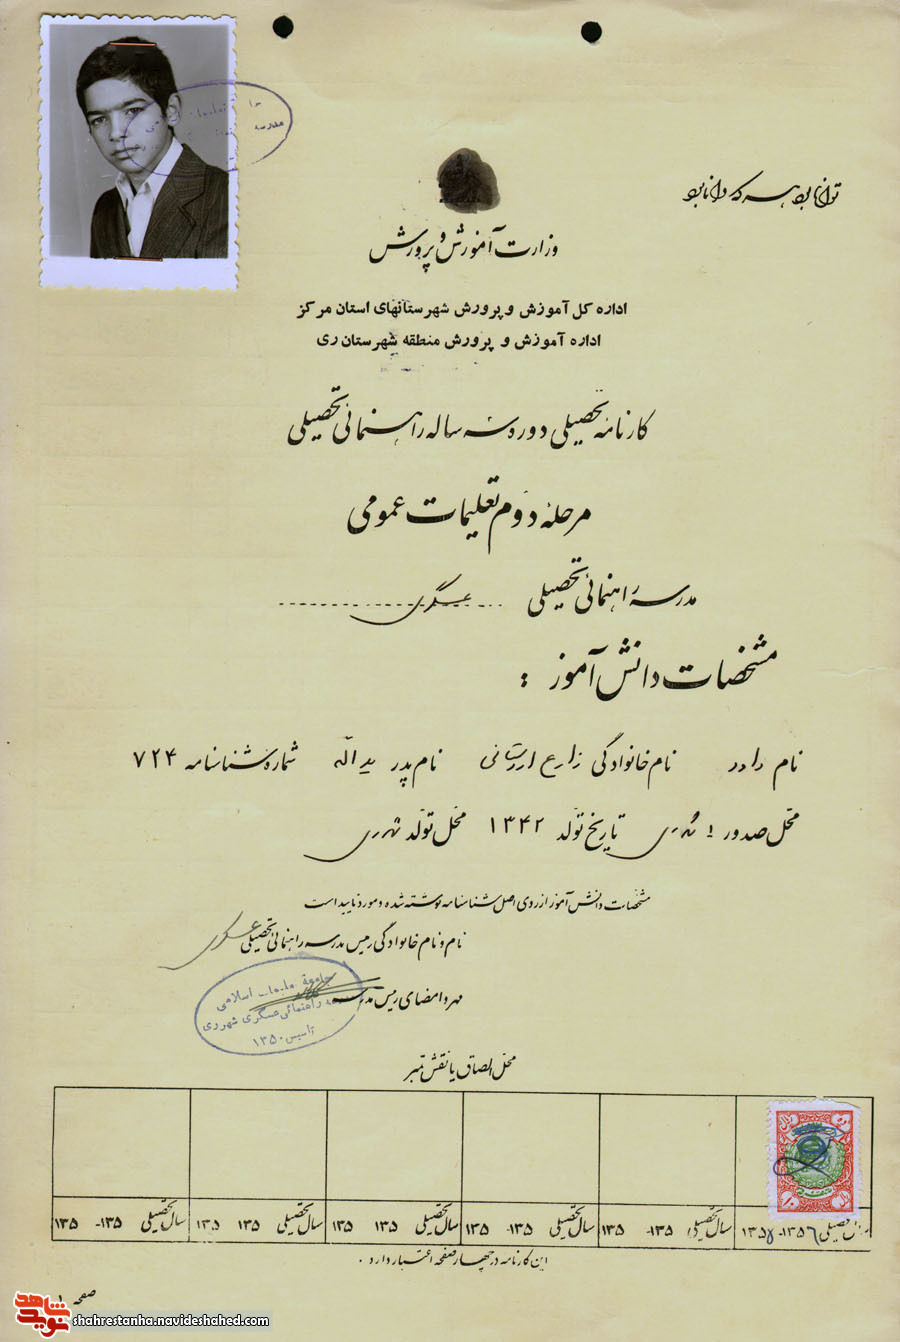 توانا بود هر که دانا بود
وزارت آموزش و پرورش
اداره کل آموزش و پرورش شهرستانهای استان مرکز
اداره آموزش و پرورش منطقه شهرستان ری
کارنامه تحصیلی دوره سه ساله راهنمائی تحصیلی
مرحله دوم تعلیمات عمومی
مدرسه راهنمائی تحصیلی عسگری
مشخصات دانش آموز :
نام داود نام خانوادگی زارع اردستانی نام پدر یداله شماره شناسنامه ۷۲۴
محل صدور شهرری تاریخ تولد ۱۳۴۲ محل تولد شهرری
مشخصات دانش آموز از روی اصل شناسنامه نوشته شده و مورد تایید است
نام و نام خانوادگی رئیس مدرسه راهنمائی تحصیلی عسگری
مهر و امضای رئیس مدرسه
جامعه تعلیمات اسلامی
مدرسه راهنمائی عسگری شهرری
تاسیس ۱۳۵۰
محل الصاق یا نقش تمبر
سال تحصیلی ۱۳۵۶-۱۳۵۷ سال تحصیلی ۱۳۵ - ۱۳۵ سال تحصیلی ۱۳۵ - ۱۳۵ سال تحصیلی ۱۳۵ ۱۳۵ سال تحصیلی ۱۳۵ ۱۳۵ سال تحصیلی ۱۳۵ - ۱۳۵
این کارنامه در چهار صفحه اعتبار دارد .
صفحه ۱
نوید شاهد
shahrestanha.navideshahed.com